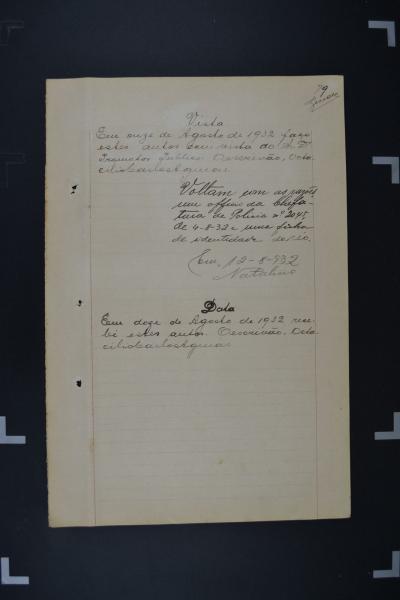 79
Vista
Em onze de Agosto de 1932 faço
estes autos com vista do Dr
Promotor Publico. O escrivão, Octa
cilio
Voltam com as razões,
um officio da Chefa-
tura de Policia nº 2045
de 4-8-32 e uma ficha
de identidade do réo.
Em, 12-8-932
Natalino
Data
Em doze de Agosto de 1932 rece-
bi estes autos. O escrivão, Octa
cilio